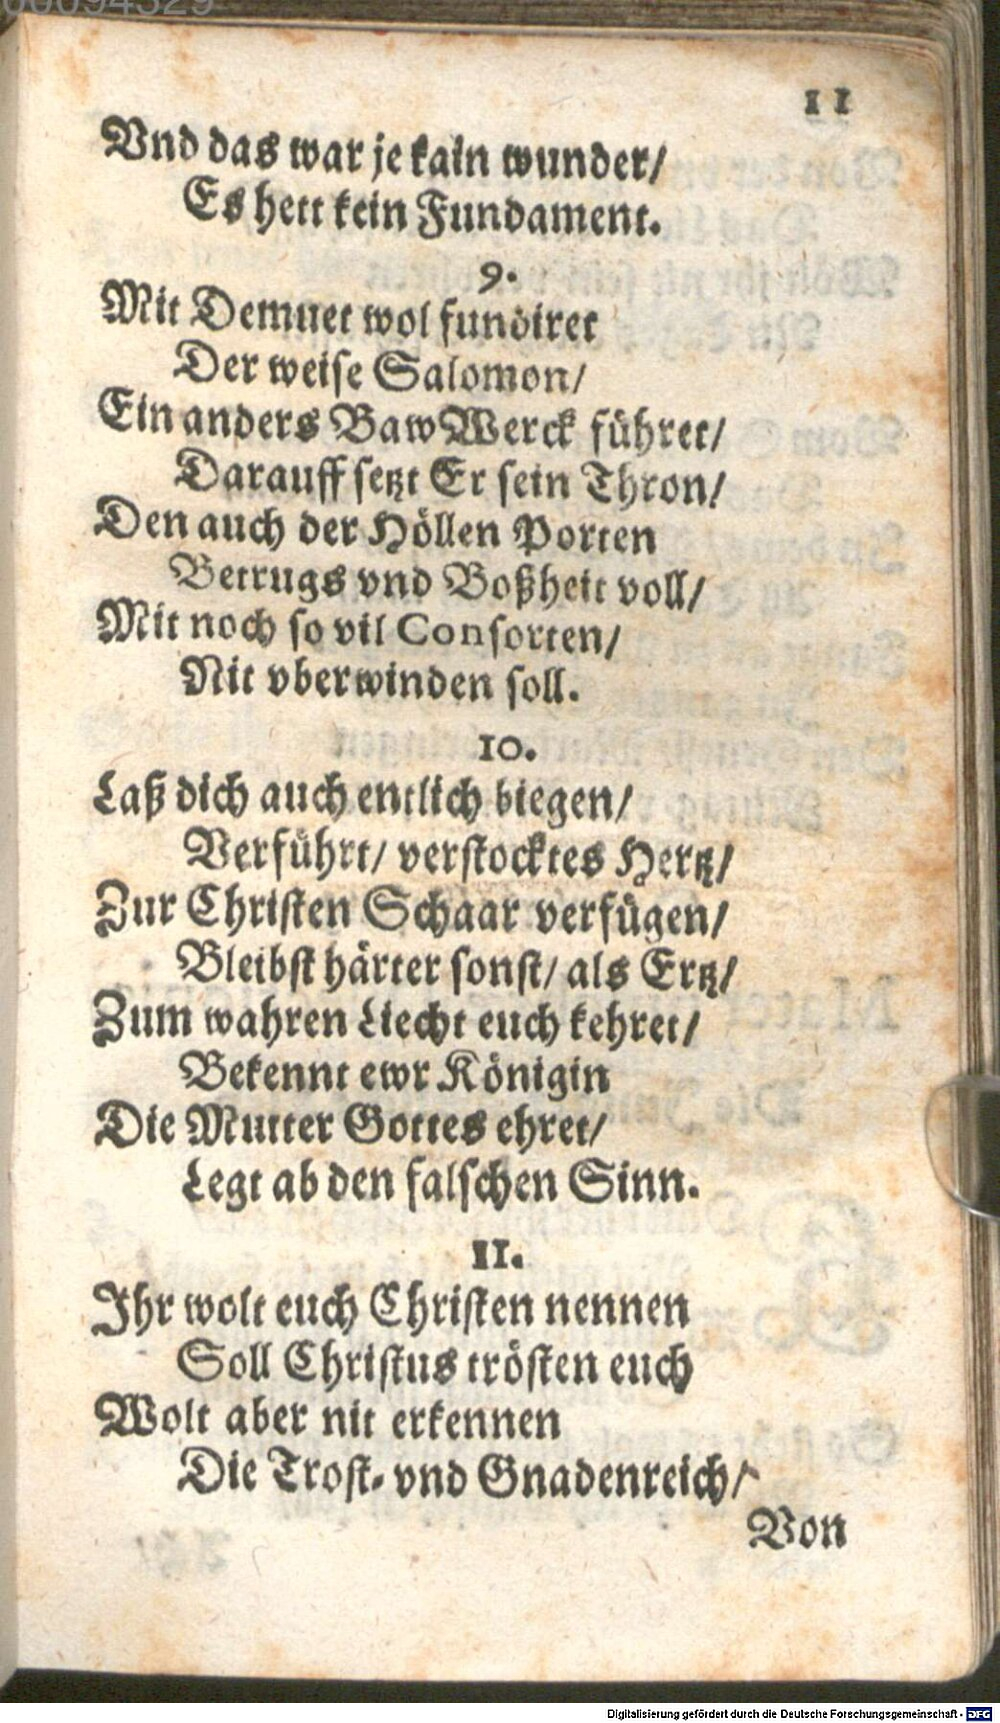 00094329
11
Vnd das war je kain wunder/
Es hett kein Fundament.
9.
Mit Demuet wol fundiret
Der weise Salomon/
Ein anders Baw Werck führet/
Darauff setzt Er sein Thron/
Den auch der Höllen Porten
Betrugs vnd Boßheit voll/
Mit noch so vil Consorten/
Nit vberwinden soll.
10.
Laß dich auch entlich biegen/
Verführt/ verstocktes Hertz/
Zur Christen Schaar verfügen/
Bleibst härter sonst/ als Ertz/
Zum wahren Liecht euch kehret/
Bekennt ewr Königin
Die Mutter Gottes ehret/
Legt ab den falschen Sinn.
11.
Ihr wolt euch Christen nennen
Soll Christus trösten euch
Wolt aber nit erkennen
Die Trost- vnd Gnadenreich/
Von
Digitalisierung gefördert durch die Deutsche Forschungsgemeinschaft - DFG